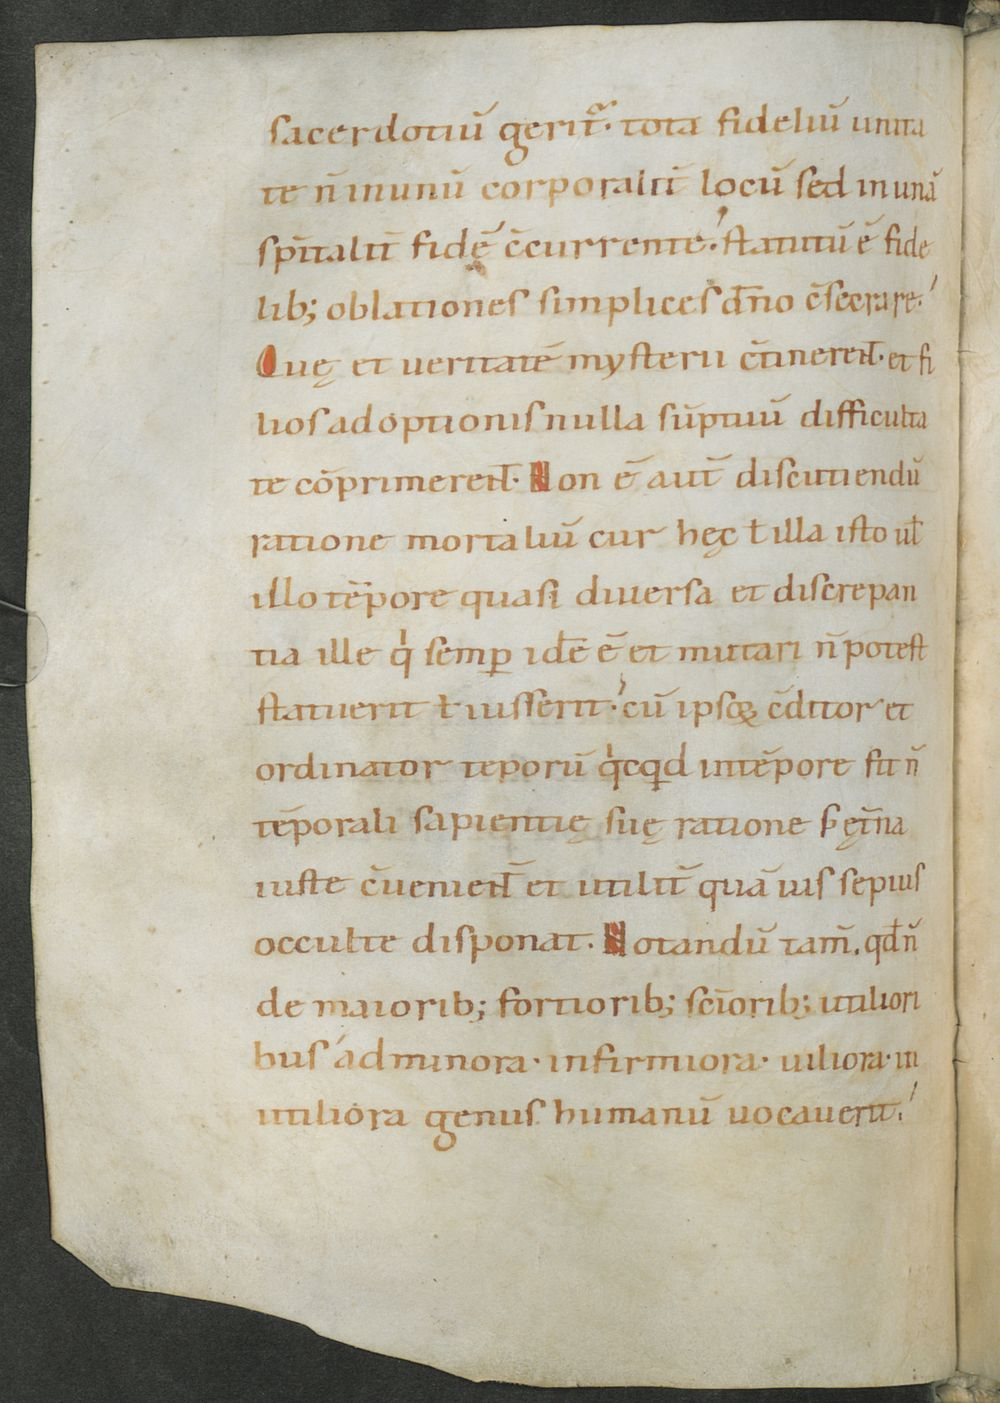 sacerdotiū gerit᷑· tota fideliū unita
te n̄ in unū corporalit̄ locū sed in unā
sp̄italit̄ fidē c̄currente· statutū ē fide
lib; oblationes simplices dn̄o c̄secrare.
Quę et ueritatē mysterii c̄tinerent̄· et fi
lios adoptionis nulla sūptuū difficulta
te cōprimerent̄· Non ē aut̄ discutiendū
ratione mortaliū cur hęc ł illa isto uł
illo tēpore quasi diuersa et discrepan
tia ille qͥ semꝑ idē ē et mutari n̄ potest
statuerit ł iusserit· cū ipseqꝫ c̄ditor et
ordinator teporū qͥcqͥd in tēpore fit n̄
tēporali sapientię suę ratione s; ęt̄na
iuste c̄uenient̄ et utilit̄ quā uis sepius
occulte disponat. Notandū tam̄. qd̄ n̄
de maiorib; fortiorib; sc̄iorib; utiliori
bus ad minora· infirmiora· uiliora· in
utiliora genus humanū uocauerit.